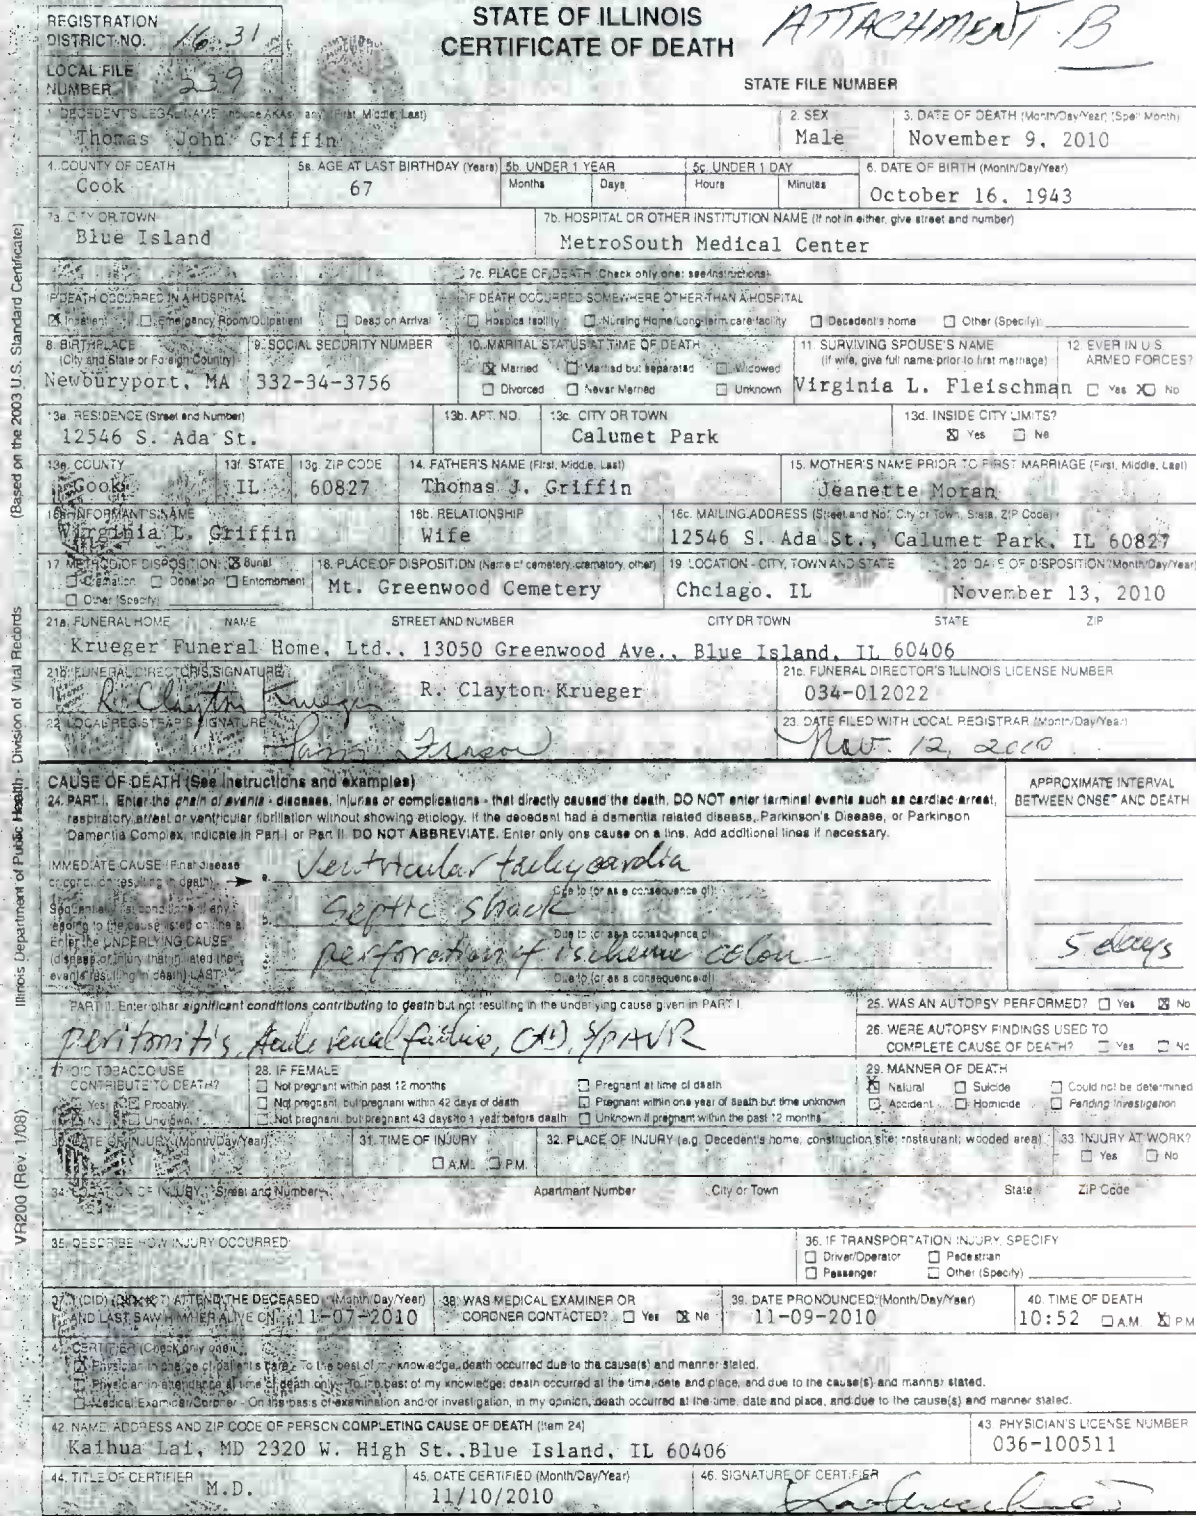 REGISTRATION DISTRICT NO. 16.31
STATE OF ILLINOIS
CERTIFICATE OF DEATH
ATTACHMENT B
LOCAL FILE NUMBER 239
STATE FILE NUMBER
1. DECEDENT'S LEGAL NAME (Include AKAs if any) (First, Middle, Last)
Thomas John Griffin
2. SEX
Male
3. DATE OF DEATH (Month/Day/Year) (Spell Month)
November 9, 2010
4. COUNTY OF DEATH
Cook
5a. AGE AT LAST BIRTHDAY (Years)
67
5b. UNDER 1 YEAR
Months Days
5c. UNDER 1 DAY
Hours Minutes
6. DATE OF BIRTH (Month/Day/Year)
October 16, 1943
7a. CITY OR TOWN
Blue Island
7b. HOSPITAL OR OTHER INSTITUTION NAME (If not in either, give street and number)
MetroSouth Medical Center
7c. PLACE OF DEATH (Check only one: see instructions)
IF DEATH OCCURRED IN A HOSPITAL
IF DEATH OCCURRED SOMEWHERE OTHER THAN A HOSPITAL
☒ Inpatient ☐ Emergency Room/Outpatient ☐ Dead on Arrival ☐ Hospice facility ☐ Nursing Home/Long-term care facility ☐ Decedent's home ☐ Other (Specify):
8. BIRTHPLACE (City and State or Foreign Country)
Newburyport, MA
9. SOCIAL SECURITY NUMBER
332-34-3756
10. MARITAL STATUS AT TIME OF DEATH
☒ Married ☐ Married but separated ☐ Widowed
☐ Divorced ☐ Never Married ☐ Unknown
11. SURVIVING SPOUSE'S NAME (If wife, give full name prior to first marriage)
Virginia L. Fleischman
12 EVER IN U.S. ARMED FORCES?
☐ Yes ☒ No
13a. RESIDENCE (Street and Number)
12546 S. Ada St.
13b. APT. NO.
13c. CITY OR TOWN
Calumet Park
13d. INSIDE CITY LIMITS?
☒ Yes ☐ No
13e. COUNTY
Cook
13f. STATE
IL
13g. ZIP CODE
60827
14. FATHER'S NAME (First, Middle, Last)
Thomas J. Griffin
15. MOTHER'S NAME PRIOR TO FIRST MARRIAGE (First, Middle, Last)
Jeanette Moran
16a. INFORMANT'S NAME
Virginia L. Griffin
16b. RELATIONSHIP
Wife
16c. MAILING ADDRESS (Street and No., City or Town, State, ZIP Code)
12546 S. Ada St., Calumet Park, IL 60827
17 METHOD OF DISPOSITION: ☒ Burial
☐ Cremation ☐ Donation ☐ Entombment
☐ Other (Specify)
18. PLACE OF DISPOSITION (Name of cemetery, crematory, other)
Mt. Greenwood Cemetery
19 LOCATION - CITY, TOWN AND STATE
Chciago, IL
20. DATE OF DISPOSITION (Month/Day/Year)
November 13, 2010
21a. FUNERAL HOME NAME STREET AND NUMBER CITY OR TOWN STATE ZIP
Krueger Funeral Home, Ltd., 13050 Greenwood Ave., Blue Island, IL 60406
21b. FUNERAL DIRECTOR'S SIGNATURE
R. Clayton Krueger
R. Clayton Krueger
21c. FUNERAL DIRECTOR'S ILLINOIS LICENSE NUMBER
034-012022
22. LOCAL REGISTRAR'S SIGNATURE
23. DATE FILED WITH LOCAL REGISTRAR (Month/Day/Year)
Nov. 12, 2010
CAUSE OF DEATH (See instructions and examples)
24. PART I. Enter the chain of events - diseases, injuries or complications - that directly caused the death. DO NOT enter terminal events such as cardiac arrest,
respiratory arrest or ventricular fibrillation without showing etiology. If the decedent had a dementia related disease, Parkinson's Disease, or Parkinson
Dementia Complex, indicate in Part I or Part II. DO NOT ABBREVIATE. Enter only one cause on a line. Add additional lines if necessary.
APPROXIMATE INTERVAL BETWEEN ONSET AND DEATH
IMMEDIATE CAUSE (Final disease or condition resulting in death)
a. Ventricular tachycardia
Due to (or as a consequence of):
Sequentially list conditions, if any, leading to the cause listed on line a. Enter the UNDERLYING CAUSE (disease or injury that initiated the events resulting in death) LAST
b. Septic shock
Due to (or as a consequence of):
c. perforation of ischemic colon
5 days
Due to (or as a consequence of):
PART II. Enter other significant conditions contributing to death but not resulting in the underlying cause given in PART I
peritonitis, Acute renal failure, CAD, S/P AVR
25. WAS AN AUTOPSY PERFORMED? ☐ Yes ☒ No
26. WERE AUTOPSY FINDINGS USED TO COMPLETE CAUSE OF DEATH? ☐ Yes ☐ No
27. DID TOBACCO USE CONTRIBUTE TO DEATH?
Yes ☐ Probably
No ☐ Unknown
28. IF FEMALE
☐ Not pregnant within past 12 months ☐ Pregnant at time of death
☐ Not pregnant, but pregnant within 42 days of death ☐ Pregnant within one year of death but time unknown
☐ Not pregnant, but pregnant 43 days to 1 year before death ☐ Unknown if pregnant within the past 12 months
29. MANNER OF DEATH
☒ Natural ☐ Suicide ☐ Could not be determined
☐ Accident ☐ Homicide ☐ Pending Investigation
30. DATE OF INJURY (Month/Day/Year)
31. TIME OF INJURY
☐ A.M. ☐ P.M.
32. PLACE OF INJURY (e.g. Decedent's home; construction site; restaurant; wooded area)
33. INJURY AT WORK?
☐ Yes ☐ No
34. LOCATION OF INJURY: Street and Number Apartment Number City or Town State ZIP Code
35. DESCRIBE HOW INJURY OCCURRED:
36. IF TRANSPORTATION INJURY, SPECIFY
☐ Driver/Operator ☐ Pedestrian
☐ Passenger ☐ Other (Specify)
37. I (DID) ATTEND THE DECEASED (Month/Day/Year)
AND LAST SAW HIM/HER ALIVE ON 11-07-2010
38. WAS MEDICAL EXAMINER OR CORONER CONTACTED? ☐ Yes ☒ No
39. DATE PRONOUNCED (Month/Day/Year)
11-09-2010
40. TIME OF DEATH
10:52 ☐ A.M. ☒ P.M.
41. CERTIFIER (Check only one)
Physician in charge of patient's care - To the best of my knowledge, death occurred due to the cause(s) and manner stated.
Physician in attendance at time of death only - To the best of my knowledge, death occurred at the time, date and place, and due to the cause(s) and manner stated.
☐ Medical Examiner/Coroner - On the basis of examination and/or investigation, in my opinion, death occurred at the time, date and place, and due to the cause(s) and manner stated.
42. NAME, ADDRESS AND ZIP CODE OF PERSON COMPLETING CAUSE OF DEATH (Item 24)
Kaihua Lai, MD 2320 W. High St., Blue Island, IL 60406
43 PHYSICIAN'S LICENSE NUMBER
036-100511
44. TITLE OF CERTIFIER
M.D.
45. DATE CERTIFIED (Month/Day/Year)
11/10/2010
46. SIGNATURE OF CERTIFIER
VR200 (Rev. 1/08) Illinois Department of Public Health - Division of Vital Records (Based on the 2003 U.S. Standard Certificate)